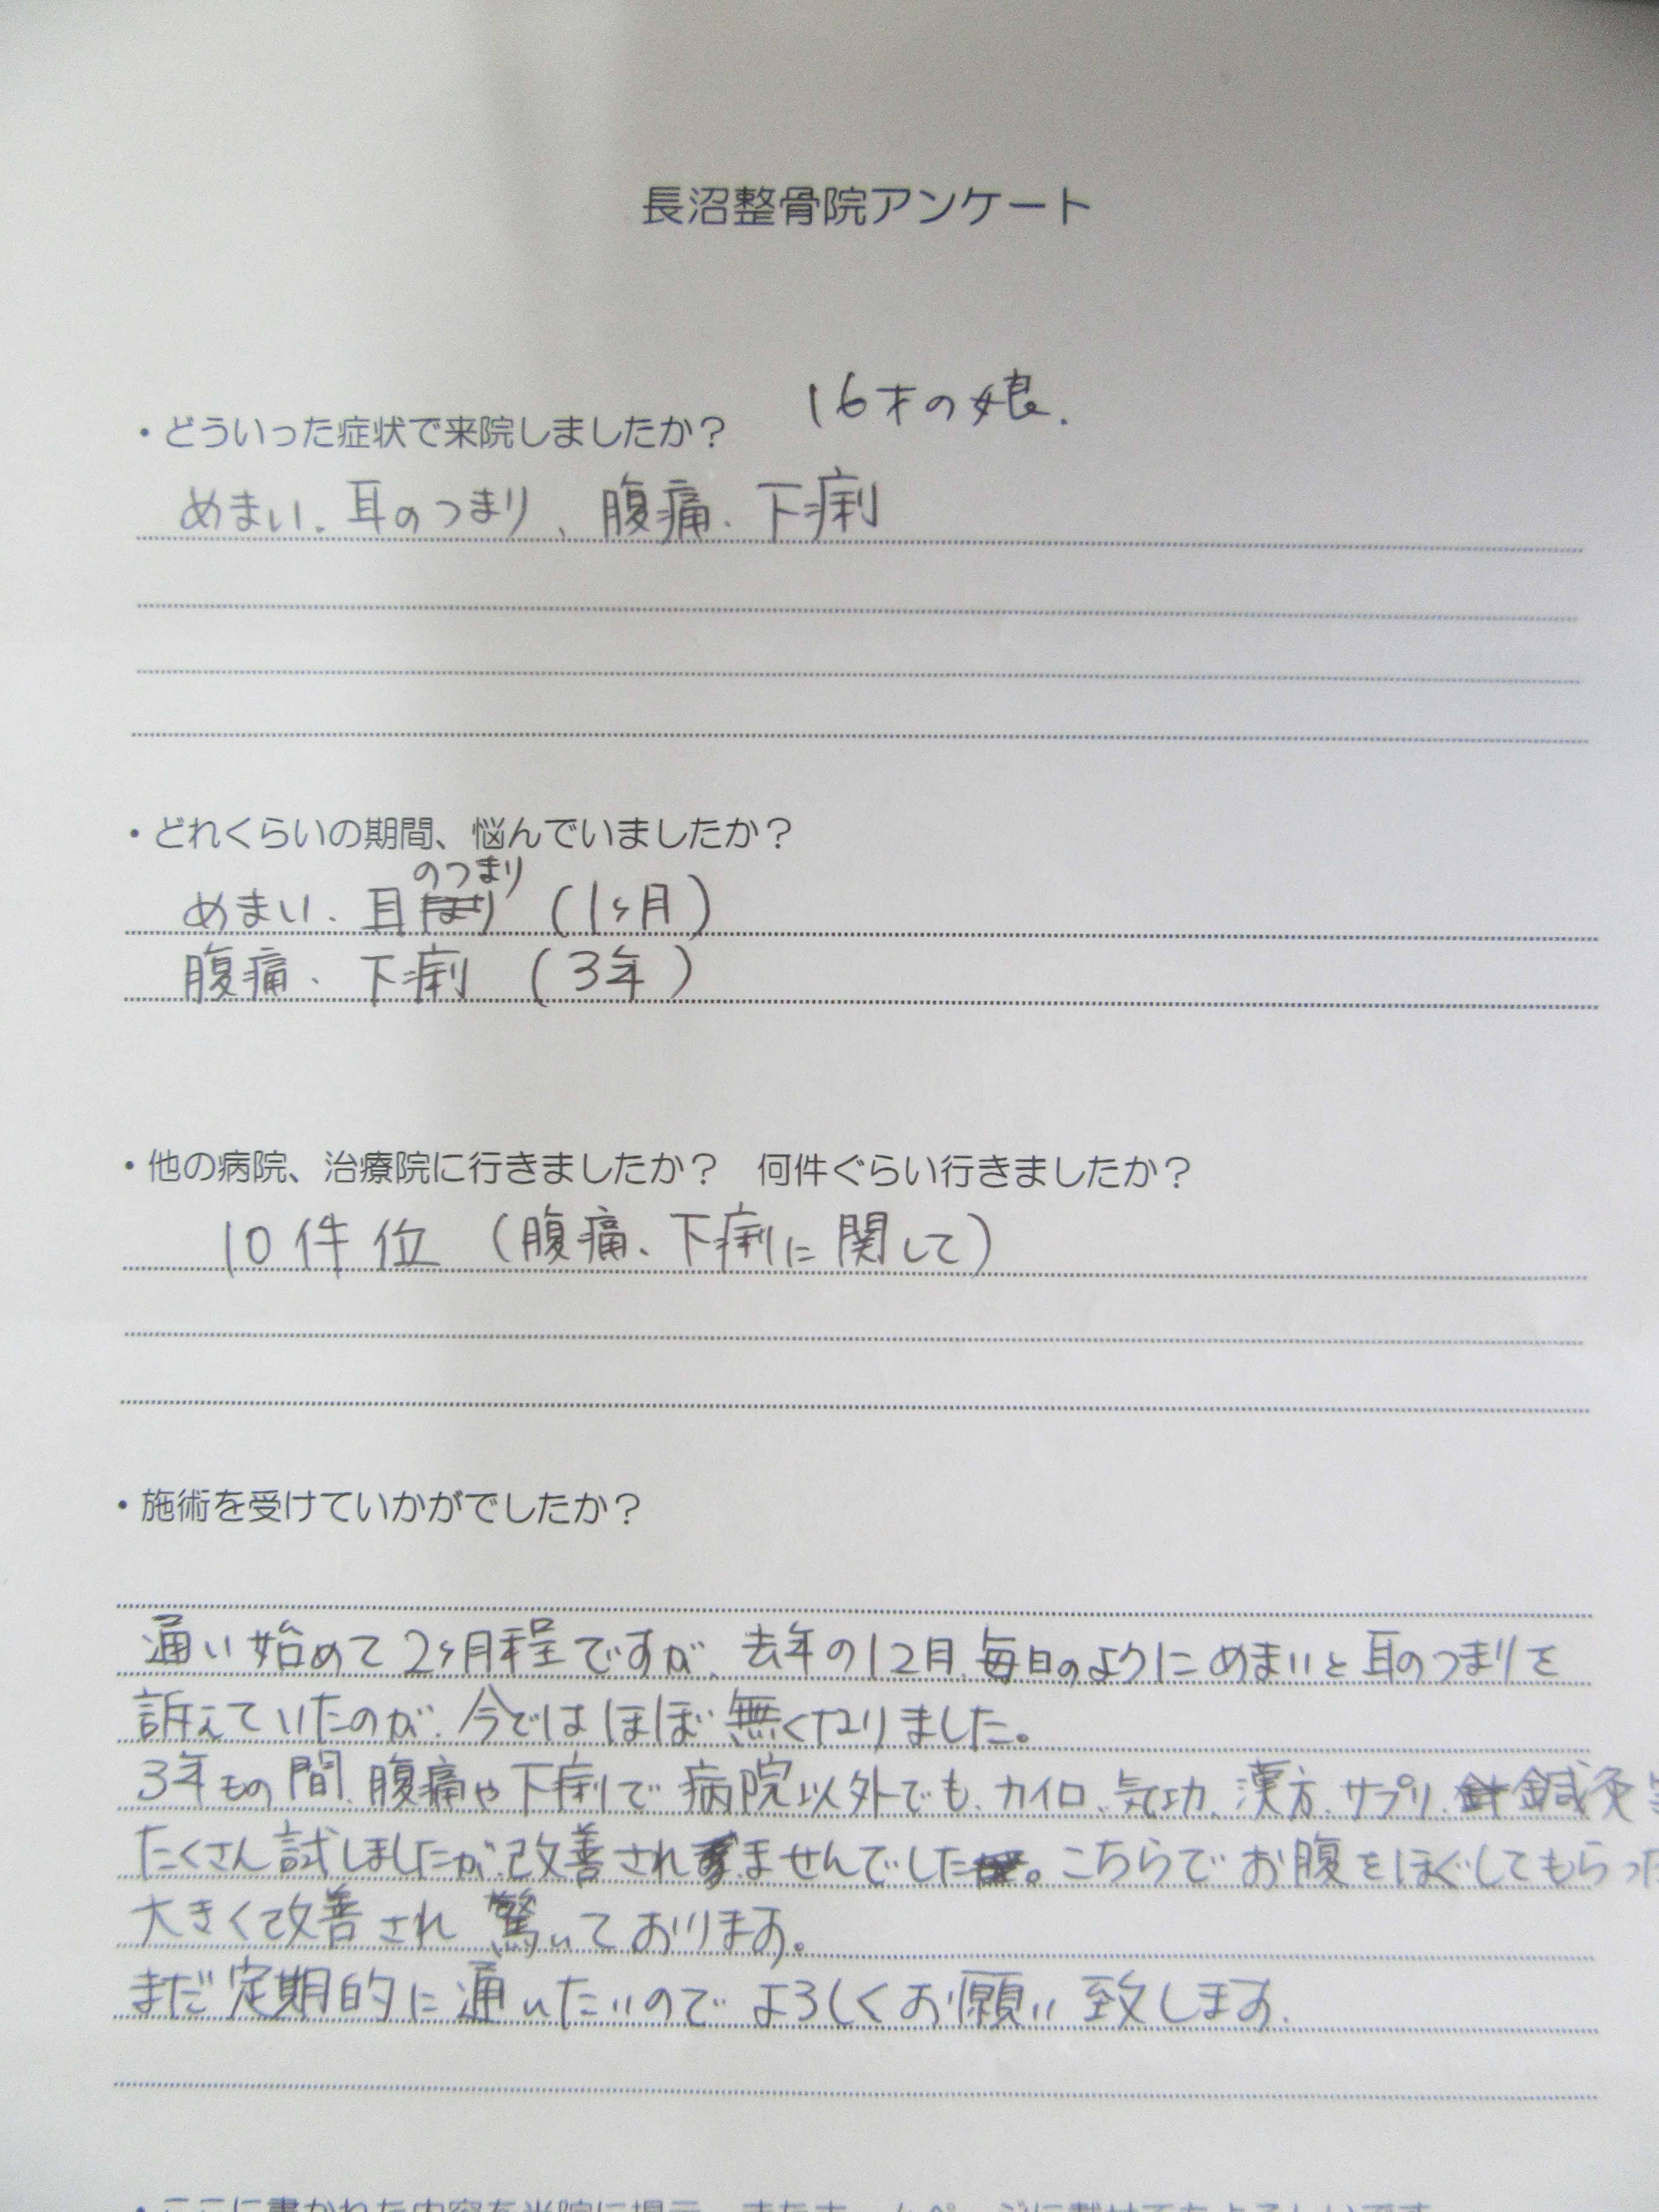 長沼整骨院アンケート
16才の娘.
・どういった症状で来院しましたか？
めまい. 耳のつまり、腹痛、下痢
・どれくらいの期間、悩んでいましたか？
のつまり
めまい. 耳 (1ヶ月)
腹痛、下痢 (3年)
・他の病院、治療院に行きましたか？　何件ぐらい行きましたか？
10件位 (腹痛、下痢に関して)
・施術を受けていかがでしたか？
通い始めて2ヶ月程ですが、去年の12月、毎日のようにめまいと耳のつまりを
訴えていたのが、今ではほぼ無くなりました。
3年もの間、腹痛や下痢で病院以外でも、カイロ、気功、漢方、サプリ、鍼灸
たくさん試しましたが、改善されませんでした。こちらでお腹をほぐしてもらった
大きく改善され驚いております。
まだ定期的に通いたいのでよろしくお願い致します.